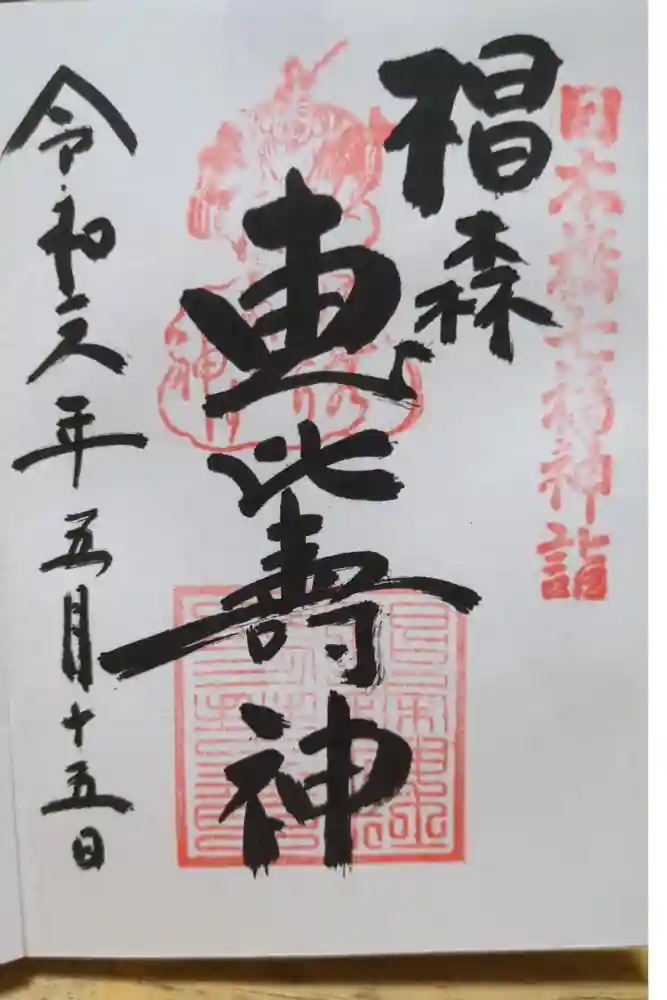 日本橋七福神詣
椙森
恵比寿神
令和元年五月十五日